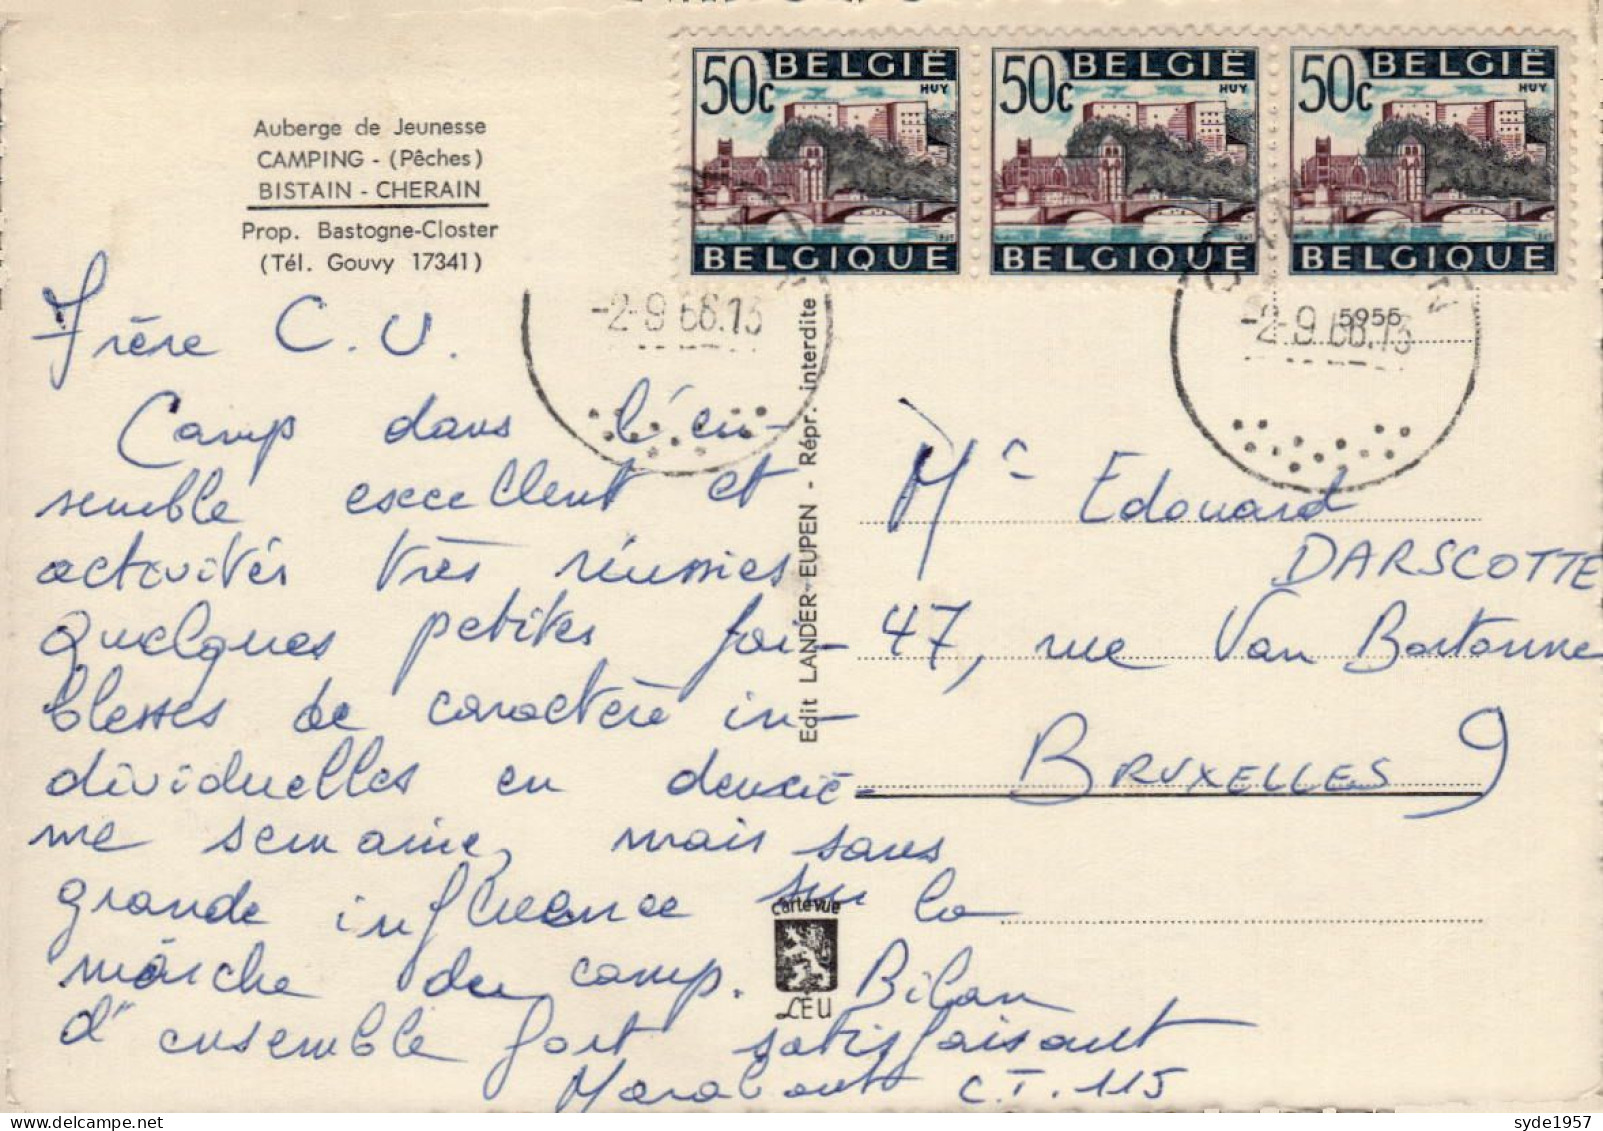 50c BELGIË
HUY
BELGIQUE
50c BELGIË
HUY
BELGIQUE
50c BELGIË
HUY
BELGIQUE
Auberge de Jeunesse
CAMPING - (Pêches)
BISTAIN - CHERAIN
Prop. Bastogne-Closter
(Tél. Gouvy 17341)
-2-9 66.13
-2-9 66.13
5956
Frère C. U.
Camp dans l'en-
semble excellent et
activités très réussies
Quelques petites fai-
blesses de caractère in-
dividuelles en deuxiè-
me semaine, mais sans
grande influence sur la
marche du camp. Bilan
d'ensemble fort satisfaisant
Marabout C.T. 115
Edit LANDER-EUPEN - Répr. interdite
carte vue
LÉU
Mr Edouard
DARSCOTTE
47, rue Van Bortonne
BRUXELLES 9
syde1957